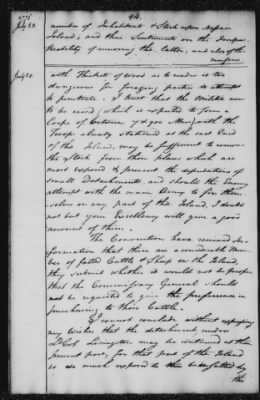 1776
44.
July 28
number of Inhabitants & Stock upon Nassau
Island; and their Sentiments on the Imprac-
ticability of removing the latter; and also of the
measures
July 28
with Thickets of wood as to render it too
dangerous for foraging parties to attempt
to penetrate. I trust that the Militia now
to be raised (which is expected to form a
Corps of between 7 & 900 Men) with the
Troops already stationed at the east End
of the Island, may be sufficient to remove
the Stock from those places which are
most exposed & prevent the depredations of
small Detachments and should the Enemy
attempt with the main Army to fix them
selves on any part of the Island, I doubt
not but your Excellency will give a good
account of them.
The Convention have received In-
formation that there are a considerable Num-
ber of fatted Cattle & Sheep on the Island,
they submit whether it would not be proper
that the Commissary General should
be requested to give the preference in
purchasing to those Cattle.
I cannot conclude without expressing
my wishes that the detachment under
Lt Col Livingston may be continued at their
present post, for that part of the Island
is as much exposed to their
the